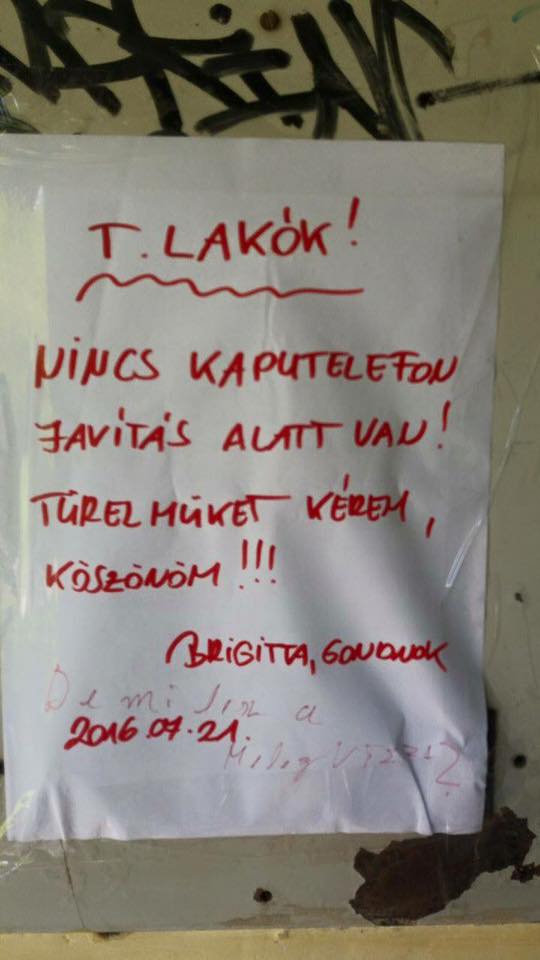 T. LAKÓK!
NINCS KAPUTELEFON
JAVÍTÁS ALATT VAN!
TÜRELMÜKET KÉREM,
KÖSZÖNÖM!!!
BRIGITTA, GONDNOK
De mi lesz a
2016.07.21.
Meleg vízzel?